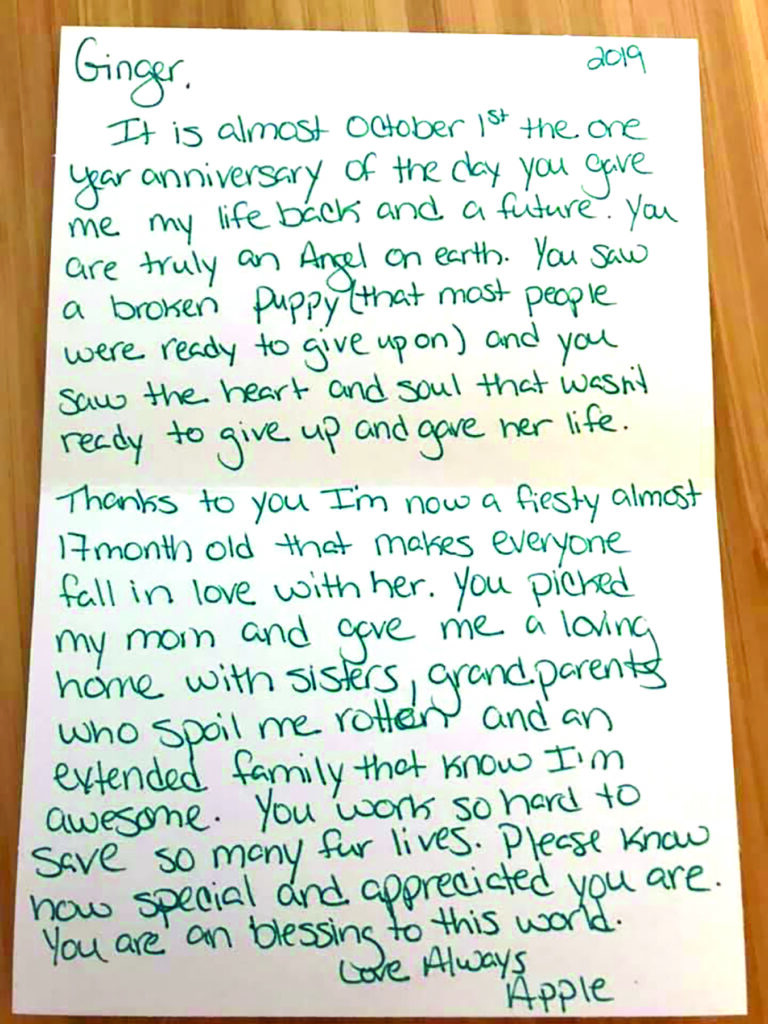 Ginger. 2019
It is almost October 1st the one
year anniversary of the day you gave
me my life back and a future. You
are truly an Angel on earth. You saw
a broken puppy (that most people
were ready to give up on) and you
saw the heart and soul that wasn't
ready to give up and gave her life.
Thanks to you I'm now a fiesty almost
17month old that makes everyone
fall in love with her. You picked
my mom and gave me a loving
home with sisters, grandparents
who spoil me rotten and an
extended family that know I'm
awesome. You work so hard to
save so many fur lives. Please know
how special and appreciated you are.
You are an blessing to this world.
Love Always
Apple